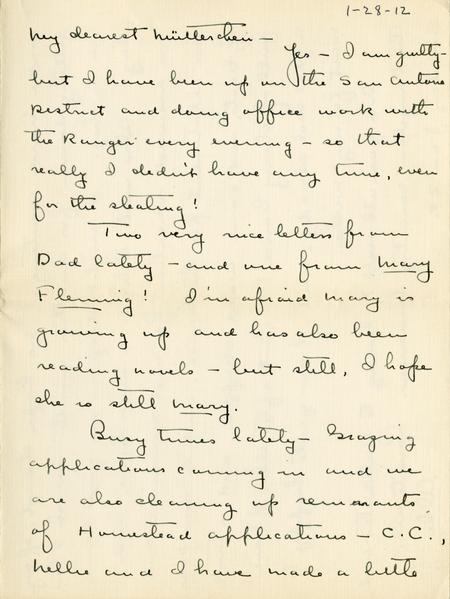 1-28-12
My dearest Mütterchen -
Yes - I am guilty -
but I have been up on the San Antone
District and doing office work with
the Ranger every evening - so that
really I didn't have any time, even
for the skating!
Two very nice letters from
Dad lately - and one from Mary
Fleming! I'm afraid Mary is
growing up and has also been
reading novels - but still, I hope
she is still Mary.
Busy times lately - Grazing
applications coming in and we
are also cleaning up remnants
of Homestead applications - C.C.,
Nellie and I have made a little